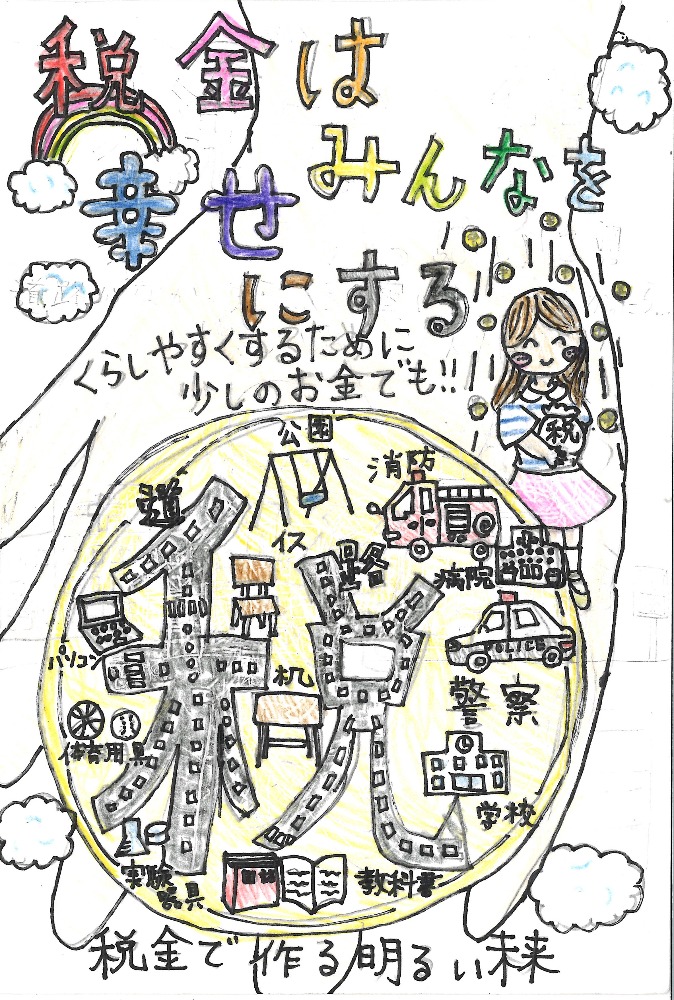 税金は
みんなを
幸せ
にする
くらしやすくするために
少しのお金でも!!
公園
消防
税
道
イス
道路
病院
パソコン
税
机
警察
体育用具
学校
実験
器具
教科書
税金で作る明るい未来